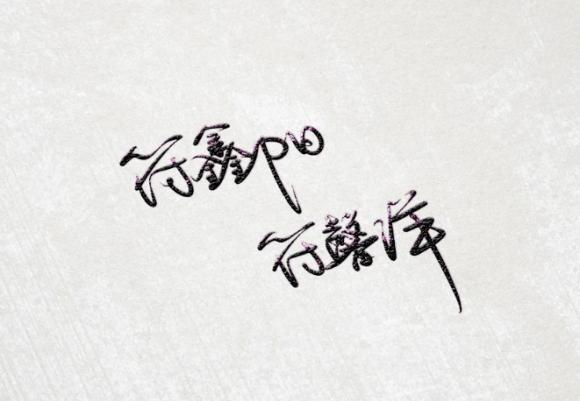 符鑫阳
符馨洋